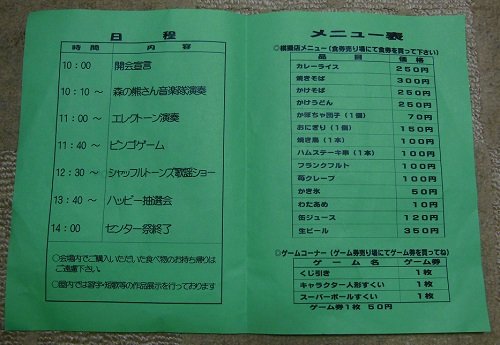 日 程
時 間 内 容
10：00 開会宣言
10：10～ 森の熊さん音楽隊演奏
11：00～ エレクトーン演奏
11：40～ ビンゴゲーム
12：30～ シャッフルトーンズ歌謡ショー
13：40～ ハッピー抽選会
14：00 センター祭終了
○会場内でご購入いただいた食べ物のお持ち帰りは
ご遠慮下さい。
○館内では習字・短歌等の作品展示を行っております
メニュー表
○模擬店メニュー（食券売り場にて食券を買って下さい）
品 目 価 格
カレーライス 250円
焼きそば 300円
かけそば 250円
かけうどん 250円
かぼちゃ団子（1個） 70円
おにぎり（1個） 150円
焼き鳥（1本） 100円
ハムステーキ串（1本） 100円
フランクフルト 100円
苺クレープ 100円
かき氷 50円
わたあめ 10円
缶ジュース 120円
生ビール 350円
○ゲームコーナー（ゲーム券売り場にてゲーム券を買ってね）
ゲ ー ム 名 ゲーム券
くじ引き 1枚
キャラクター人形すくい 1枚
スーパーボールすくい 1枚
ゲーム券1枚 50円